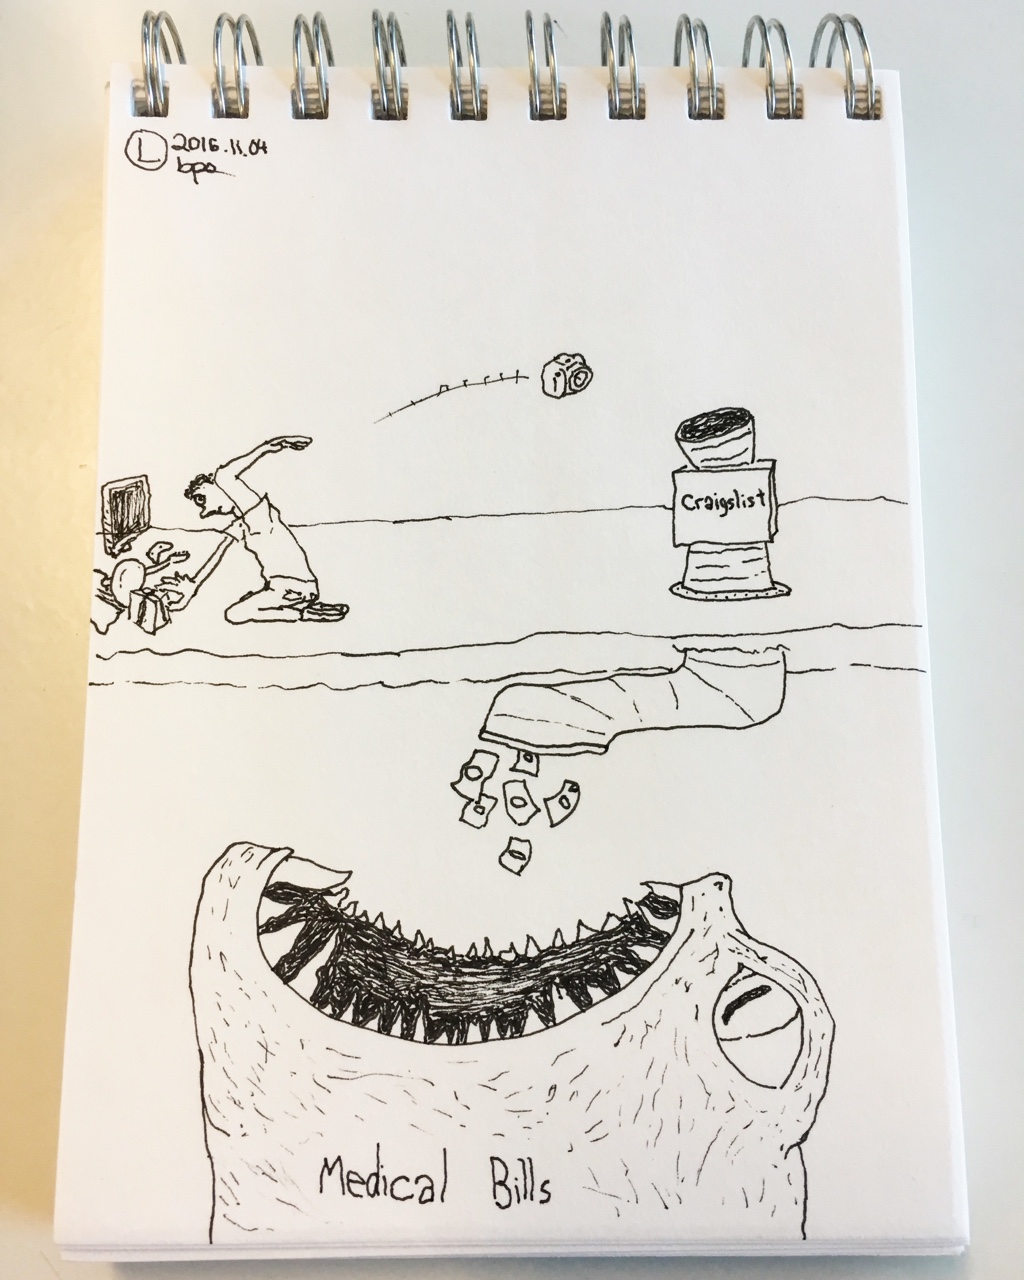 L 2016.11.04
bpa
Craigslist
Medical Bills